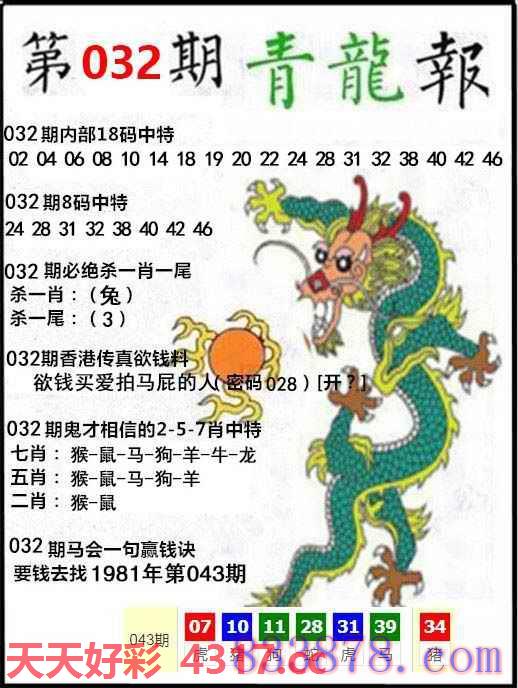 第032期青龍報
032期内部18码中特
02 04 06 08 10 14 18 19 20 22 24 28 31 32 38 40 42 46
032期8码中特
24 28 31 32 38 40 42 46
032期必绝杀一肖一尾
杀一肖:(兔)
杀一尾:(3)
032期香港传真欲钱料
欲钱买爱拍马屁的人(密码028)[开?]
032期鬼才相信的2-5-7肖中特
七肖:猴-鼠-马-狗-羊-牛-龙
五肖:猴-鼠-马-狗-羊
二肖:猴-鼠
032期马会一句赢钱诀
要钱去找1981年第043期
043期 07 10 11 28 31 39 34
虎 猪 狗 蛇 虎 马 猪
天天好彩 4317.cc